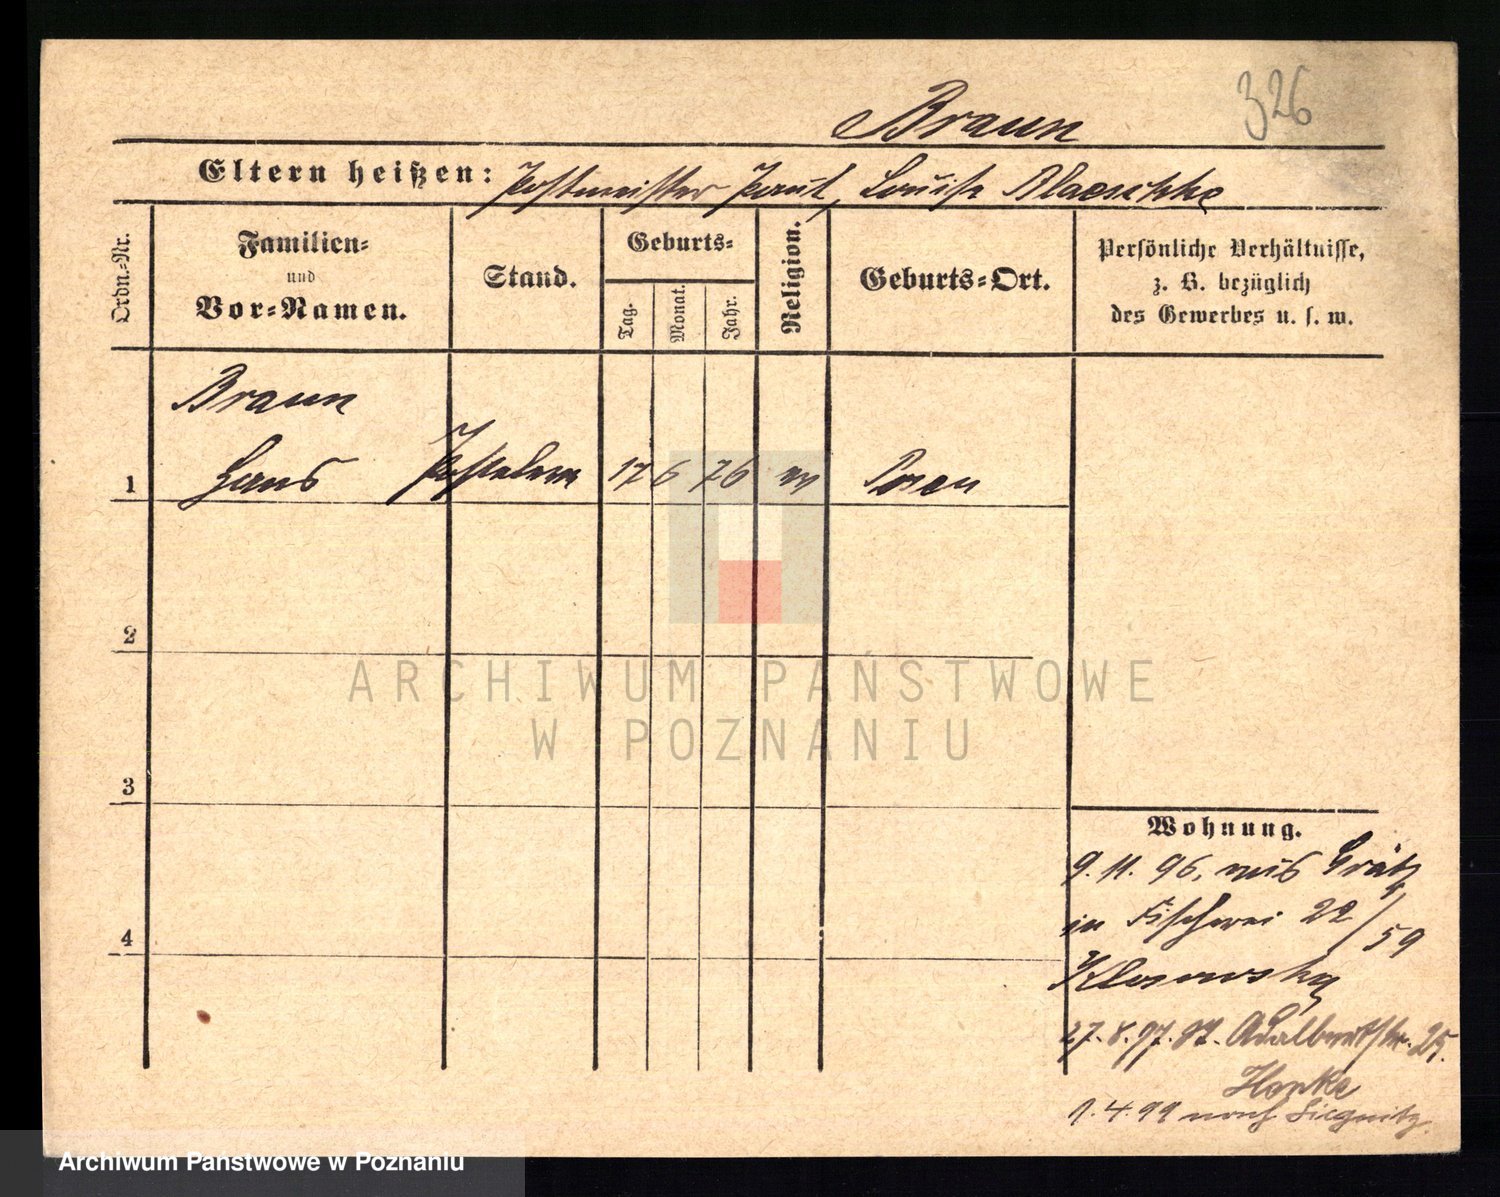 326
Braun
Eltern heißen: Postmeister Paul, Louise Blaeschke
Ordn.-Nr.
Familien-
und
Vor-Namen.
Stand.
Geburts-
Tag.
Monat.
Jahr.
Religion.
Geburts-Ort.
Persönliche Verhältnisse,
z. B. bezüglich
des Gewerbes u. s. w.
Braun
1 Hans 17 6 76 Posen
2
3
4
Wohnung.
9.11.96. aus Grätz
in Fischerei 22/59
Klosowsky
27.8.97. Adalbertstr. 25.
Hopke
1.4.99 nach Liegnitz.
ARCHIWUM PAŃSTWOWE
W POZNANIU
Archiwum Państwowe w Poznaniu